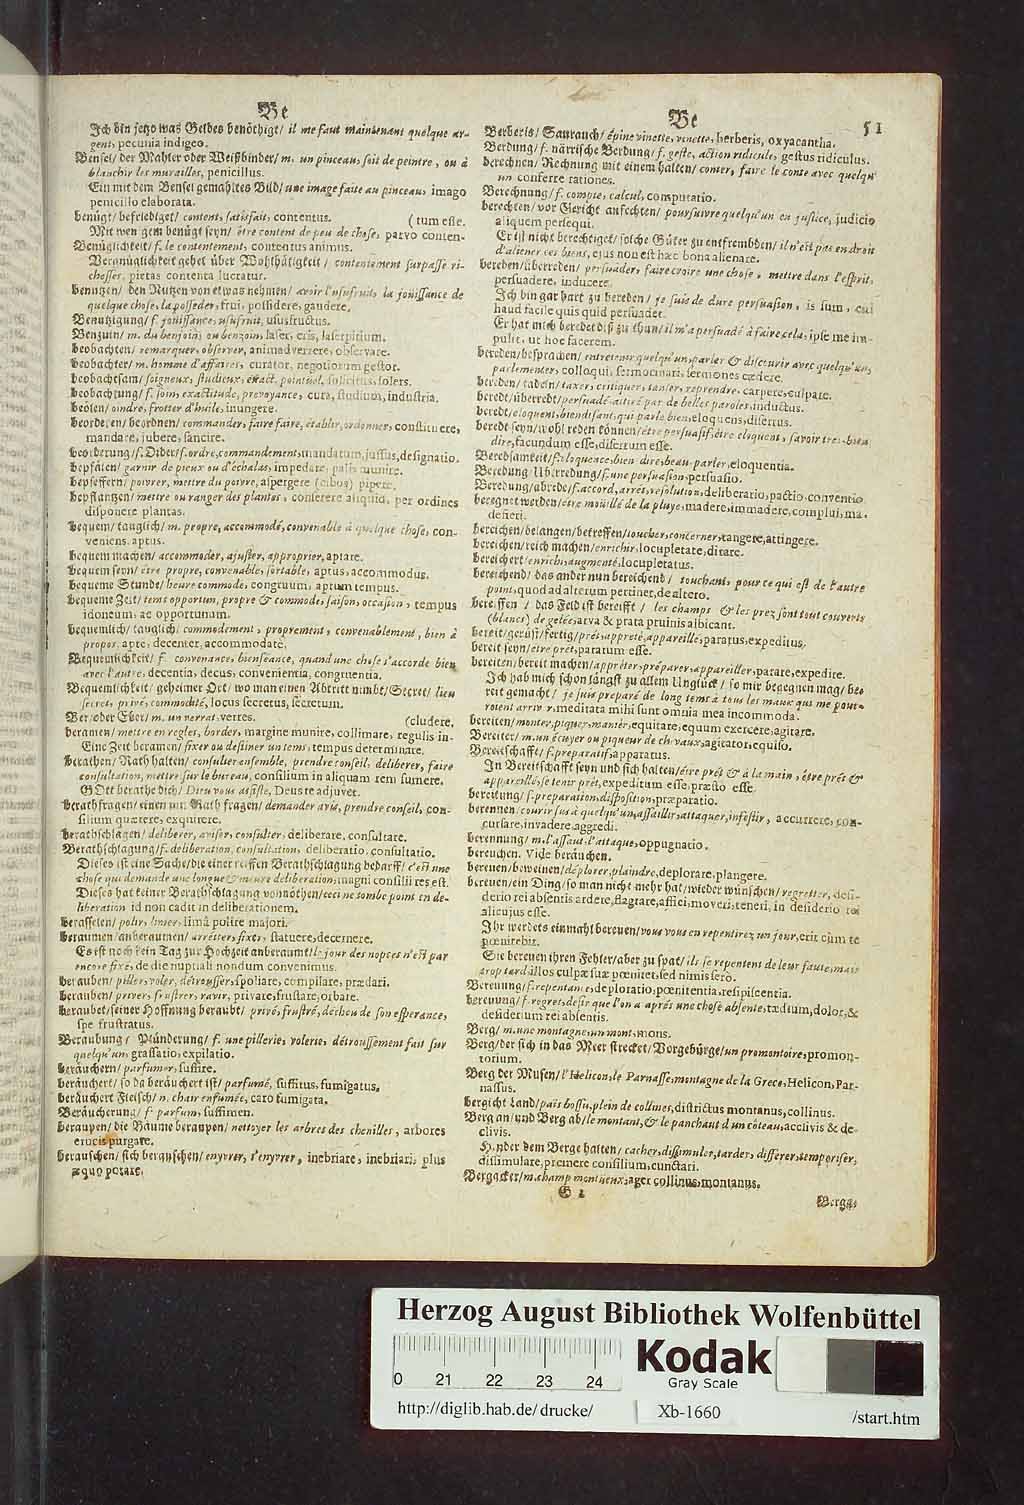 Be
Ich bin jetzo was Geldes benöthigt/ il me faut maintenant quelque ar-
gent, pecunia indigeo.
Bensel/ der Mahler oder Weißbinder/ m. un pinceau, soit de peintre, ou à
blanchir les murailles, penicillus.
Ein mit dem Bensel gemahltes Bild/ une image faite au pinceau, imago
penicillo elaborata.
benügt/ befriediget/ content, satisfait, contentus. (tum esse.
Mit wen gem benügt seyn/ être content de peu de chose, parvo conten-
Benüglichkeit/ f. le contentement, contentus animus.
Vergnüglichkeit gehet über Wohlthätigkeit/ contentement surpasse ri-
chesse, pietas contenta lucratur.
benutzen/ den Nutzen von etwas nehmen/ avoir l'usufruit, la jouissance de
quelque chose, la posseder, frui, possidere, gaudere.
Benutzigung/ f. jouissance, usufruit, ususfructus.
Benzuin/ m. du benjoin, ou benzoin, laser, eris, laserpitium.
beobachten/ remarquer, observer, animadvertere, observare.
beobachter/ m. homme d'affaires, curator, negotiorum gestor.
beobachtsam/ soigneux, studieux, exact, pointuel, sollicitus, solers.
beobachtung/ f. soin, exactitude, prevoyance, cura, studium, industria.
beölen/ oindre, frotter d'huile, inungere.
beordern/ beordnen/ commander, faire faire, établir, ordonner, constituere,
mandare, jubere, sancire.
beorderung/ f. Order/ f. ordre, commandement, mandatum, jussus, designatio.
bepfälen/ garnir de pieux ou d'échalas, impedare, palis munire.
bepfeffern/ poivrer, mettre du poivre, aspergere (cibos) pipere.
bepflantzen/ mettre ou ranger des plantes, conserere aliquid, per ordines
disponere plantas.
bequem/ tauglich/ m. propre, accommodé, convenable à quelque chose, con-
veniens, aptus.
bequem machen/ accommoder, ajuster, approprier, aptare.
bequem seyn/ être propre, convenable, sortable, aptus, accommodus.
bequeme Stunde/ heure commode, congruum, aptum tempus.
bequeme Zeit/ tems opportum, propre & commode, saison, occasion, tempus
idoneum, ac opportunum.
bequemlich/ tauglich/ commodement, proprement, convenablement, bien à
propos, apte, decenter, accommodatè.
Bequemlichkeit/ f. convenance, bienséance, quand une chose s'accorde bien
avec l'autre, decentia, decus, convenientia, congruentia.
Bequemlichkeit/ geheimer Ort/ wo man einen Abtritt nimbt/ Secret/ lieu
secret, privé, commodité, locus secretus, secretum.
Ber oder Eber/ m. un verrat, verres. (cludere.
beramen/ mettre en regles, border, margine munire, collimare, regulis in-
Eine Zeit beramen/ fixer ou destiner un tems, tempus determinare.
berathen/ Rath halten/ consulter ensemble, prendre conseil, deliberer, faire
consultation, mettre sur le bureau, consilium in aliquam rem sumere.
GOtt berathe dich/ Dieu vous assiste, Deus te adjuvet.
berathfragen/ einen um Rath fragen/ demander avis, prendre conseil, con-
silium quærere, exquirere.
berathschlagen/ deliberer, aviser, consulter, deliberare, consultare.
Berathschlagung/ f. deliberation, consultation, deliberatio, consultatio.
Dieses ist eine Sache/ die einer reiffen Berathschlagung bedarff/ c'est une
chose qui demande une longue & meure deliberation, magni consilii res est.
Dieses hat keiner Berathschlagung vonnöthen/ ceci ne tombe point en de-
liberation, id non cadit in deliberationem.
berasseln/ polir, limer, limâ polire majori.
beraumen/ anberaumen/ arrétter, fixer, statuere, decernere.
Es ist noch kein Tag zur Hochzeit anberaumt/ le jour des nopces n'est pas
encore fixé, de die nuptiali nondum convenimus.
berauben/ piller, voler, détrousser, spoliare, compilare, prædari.
berauben/ priver, frustrer, ravir, privare, frustare, orbare.
beraubet/ seiner Hoffnung beraubt/ privé, frustré, décheu de son esperance,
spe frustratus.
Beraubung/ Plünderung/ f. une pillerie, volerie, détroussement fait sur
quelqu'un, grassatio, expilatio.
beräuchern/ parfumer, suffire.
beräuchert/ so da beräuchert ist/ parfumé, suffitus, fumigatus.
beräuchert Fleisch/ n. chair enfumée, caro fumigata.
Beräucherung/ f. parfum, suffimen.
beraupen/ die Bäume beraupen/ nettoyer les arbres des chenilles, arbores
erucis purgare.
berauschen/ sich berauschen/ enyvrer, s'enyvrer, inebriare, inebriari, plus
æquo potare.
Be
51
Berberis/ Saurauch/ épine vinette, vinette, berberis, oxyacantha.
Berdung/ f. närrische Berdung/ f. geste, action ridicule, gestus ridiculus.
berechnen/ Rechnung mit einem halten/ conter, faire le conte avec quelqu'
un conferre rationes.
Berechnung/ f. compte, calcul, computatio.
berechten/ vor Gericht anfechten/ poursuivre quelqu'un en justice, judicio
aliquem persequi.
Er ist nicht berechtiget/ solche Güter zu entfrembden/ il n'est pas en droit
d'aliener ces biens, ejus non est hæc bona alienare.
bereden/ überreden/ persuader, faire croire une chose, mettre dans l'esprit,
persuadere, inducere.
Ich bin gar hart zu bereden/ je suis de dure persuasion, is sum, cui
haud facile quis quid persuadet.
Er hat mich beredet diß zu thun/ il m'a persuadé à faire cela, ipse me im-
pulit, ut hoc facerem.
bereden/ besprachen/ entretenir quelqu'un, parler & discourir avec quelqu'un,
parlementer, colloqui, sermocinari, sermones cædere.
bereden/ tadeln/ taxer, critiquer, tanser, reprendre, carpere, culpare.
beredt/ überredt/ persuadé, attiré par de belles paroles, inductus.
beredt/ eloquent, biendisant, qui parle bien, eloquens, disertus.
beredt seyn/ wohl reden können/ étre persuasif, étre eloquent, savoir tres-bien
dire, facundum esse, disertum esse.
Beredsamkeit/ f. eloquence, bien dire, beau parler, eloquentia.
Beredung/ Uberredung/ f. une persuasion, persuasio.
Beredung/ abrede/ f. accord, arrét, resolution, deliberatio, pactio, conventio.
beregnet werden/ étre mouillé de la pluye, madere, immadere, complui, ma-
defieri.
bereichen/ belangen/ betreffen/ toucher, concerner, tangere, attingere.
bereichen/ reich machen/ enrichir, locupletare, ditare.
bereichert/ enrichi, augmenté, locupletatus.
bereichend/ das ander nun bereichend/ touchant, pour ce qui est de l'autre
point, quod ad alterum pertinet, de altero.
bereiffen/ das Feld ist bereifft/ les champs & les prez sont tout couverts
(blancs) de gelée, arva & prata pruinis albicant.
bereit/ gerüst/ fertig/ prét, appreté, appareillé, paratus, expeditus.
bereit seyn/ étre prét, paratum esse.
bereiten/ bereit machen/ appréter, préparer, appareiller, parare, expedire.
Ich hab mich schon längst zu allem Unglück/ so mir begegnen mag/ be-
reit gemacht/ je suis preparé de long tems à tous les maux qui me pour-
roient arriver, meditata mihi sunt omnia mea incommoda.
bereiten/ monter, piquer, manier, equitare, equum exercere, agitare.
Bereiter/ m. un écuyer ou piqueur de chevaux, agitator, equiso.
Bereitschafft/ f. preparatif, apparatus.
In Bereitschafft seyn und sich halten/ étre prét & à la main, étre prét &
appareillé, se tenir prét, expeditum esse, præsto esse.
bereitung/ f. preparation, disposition, præparatio.
berennen/ courir sus à quelqu'un, assaillir, attaquer, infestir, accurrere, con-
cursare, invadere, aggredi.
berennung/ m. l'assaut, l'attaque, oppugnatio.
bereuchen. Vide beräuchen.
bereuen/ beweinen/ déplorer, plaindre, deplorare, plangere.
bereuen/ ein Ding/ so man nicht mehr hat/ wieder wünschen/ regretter, desi-
derio rei absentis ardere, flagrare, affici, moveri, teneri, in desiderio rei
alicujus esse.
Ihr werdets einmahl bereuen/ vous vous en repentirez un jour, erit cùm te
pœnitebit.
Sie bereuen ihren Fehler/ aber zu spat/ ils se repentent de leur faute, mais
trop tard illos culpæ suæ pœnitet, sed nimis serò.
Bereuung/ f. repentance, deploratio, pœnitentia, resipiscentia.
bereuung/ f. regret, desir que l'on a aprés une chose absente, tædium, dolor, &
desiderium rei absentis.
Berg/ m. une montagne, un mont, mons.
Berg/ der sich in das Meer strecket/ Vorgebürge/ un promontoire, promon-
torium.
Berg der Musen/ l'Helicon, le Parnasse, montagne de la Grece, Helicon, Par-
nassus.
bergicht Land/ païs bossu, plein de collines, districtus montanus, collinus.
Berg an/ und Berg ab/ le montant, & le panchant d'un côteau, acclivis & de-
clivis.
Hinder dem Berge halten/ cacher, dissimuler, tarder, differer, temporiser,
dissimulare, premere consilium, cunctari.
Bergacker/ m. champ montueux, ager collinus, montanus.
G 2
Berga-
Herzog August Bibliothek Wolfenbüttel
0 21 22 23 24
Kodak
Gray Scale
http://diglib.hab.de/ drucke/ Xb-1660 /start.htm